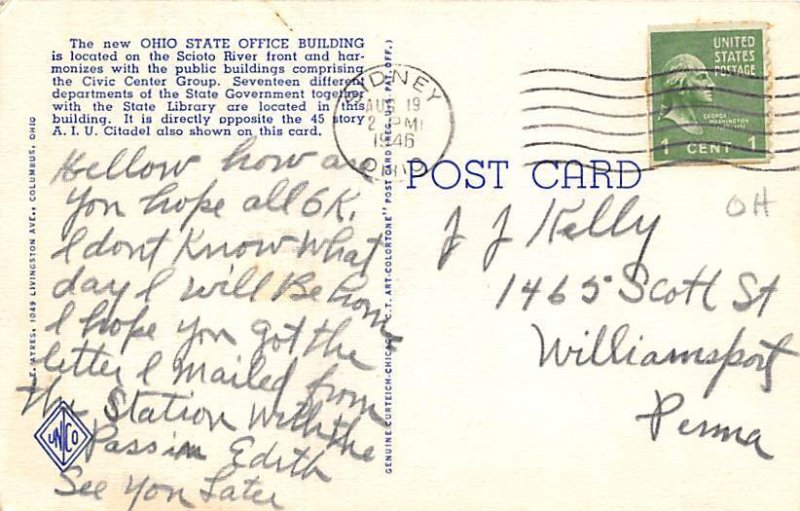 The new OHIO STATE OFFICE BUILDING
is located on the Scioto River front and har-
monizes with the public buildings comprising
the Civic Center Group. Seventeen different
departments of the State Government together
with the State Library are located in this
building. It is directly opposite the 45 story
A. I. U. Citadel also shown on this card.
Hellow how are
you hope all OK.
I dont Know What
day I will Be home
I hope you got the
letter I Mailed from
the Station With the
Pass in Edith
See You Later
AYRES, 1049 LIVINGSTON AVE., COLUMBUS, OHIO
UNCO
GENUINE CURTEICH-CHICAGO "C.T. ART-COLORTONE" POST CARD (REG. U.S. PAT. OFF.)
SIDNEY
AUG 19
2 PM
1946
OHIO
UNITED
STATES
POSTAGE
GEORGE
WASHINGTON
1 CENT 1
POST CARD
OH
J J Kelly
1465 Scott St
Williamsport
Penna